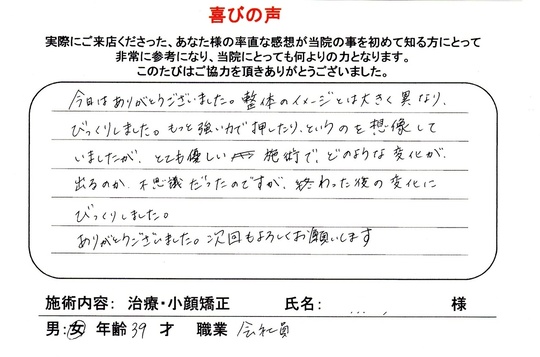 喜びの声
実際にご来店くださった、あなた様の率直な感想が当院の事を初めて知る方にとって
非常に参考になり、当院にとっても何よりの力となります。
このたびはご協力を頂きありがとうございました。
今日はありがとうございました。整体のイメージとは大きく異なり、
びっくりしました。もっと強い力で押したり、というのを想像して
いましたが、とても優しい施術で、どのような変化が
出るのか、不思議だったのですが、終わった後の変化に
びっくりしました。
ありがとうございました。次回もよろしくお願いします
施術内容: 治療・小顔矯正 氏名: 様
男:女 年齢 39 才 職業 会社員